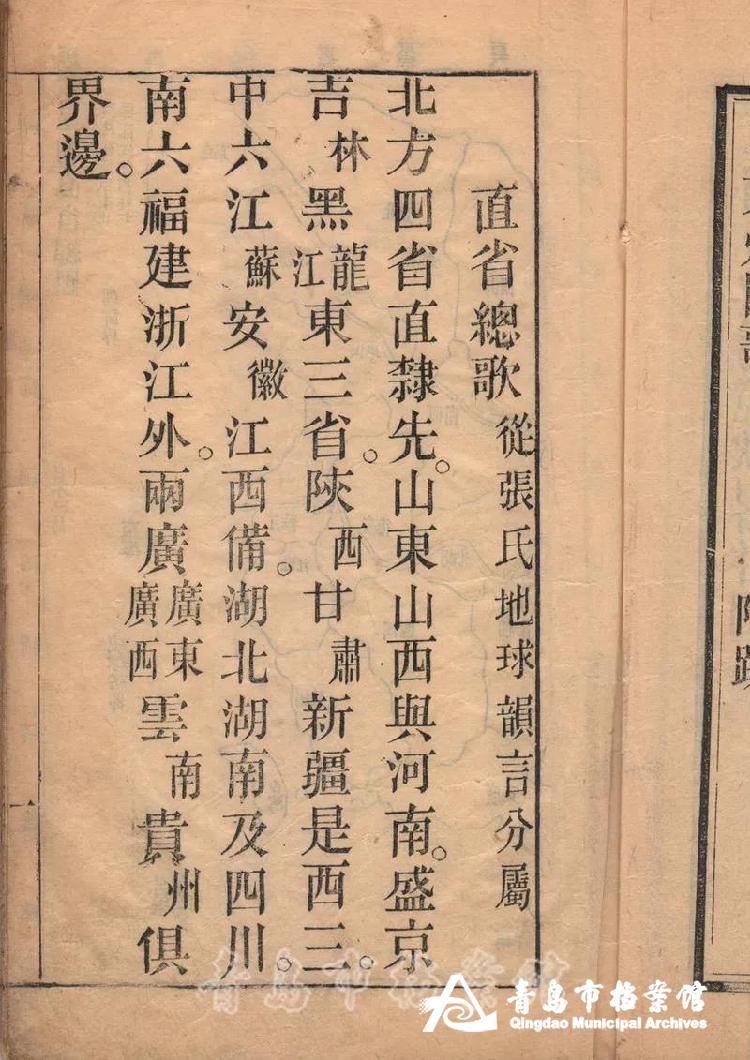 直省總歌 從張氏地球韻言分屬
北方四省直隸先。山東山西與河南。盛京
吉林黑龍江東三省。陝西甘肅新疆是西三。
中六江蘇安徽江西備。湖北湖南及四川。
南六福建浙江外。兩廣廣東廣西雲南貴州俱
界邊。
青島市档案馆
青島市档案館
Qingdao Municipal Archives